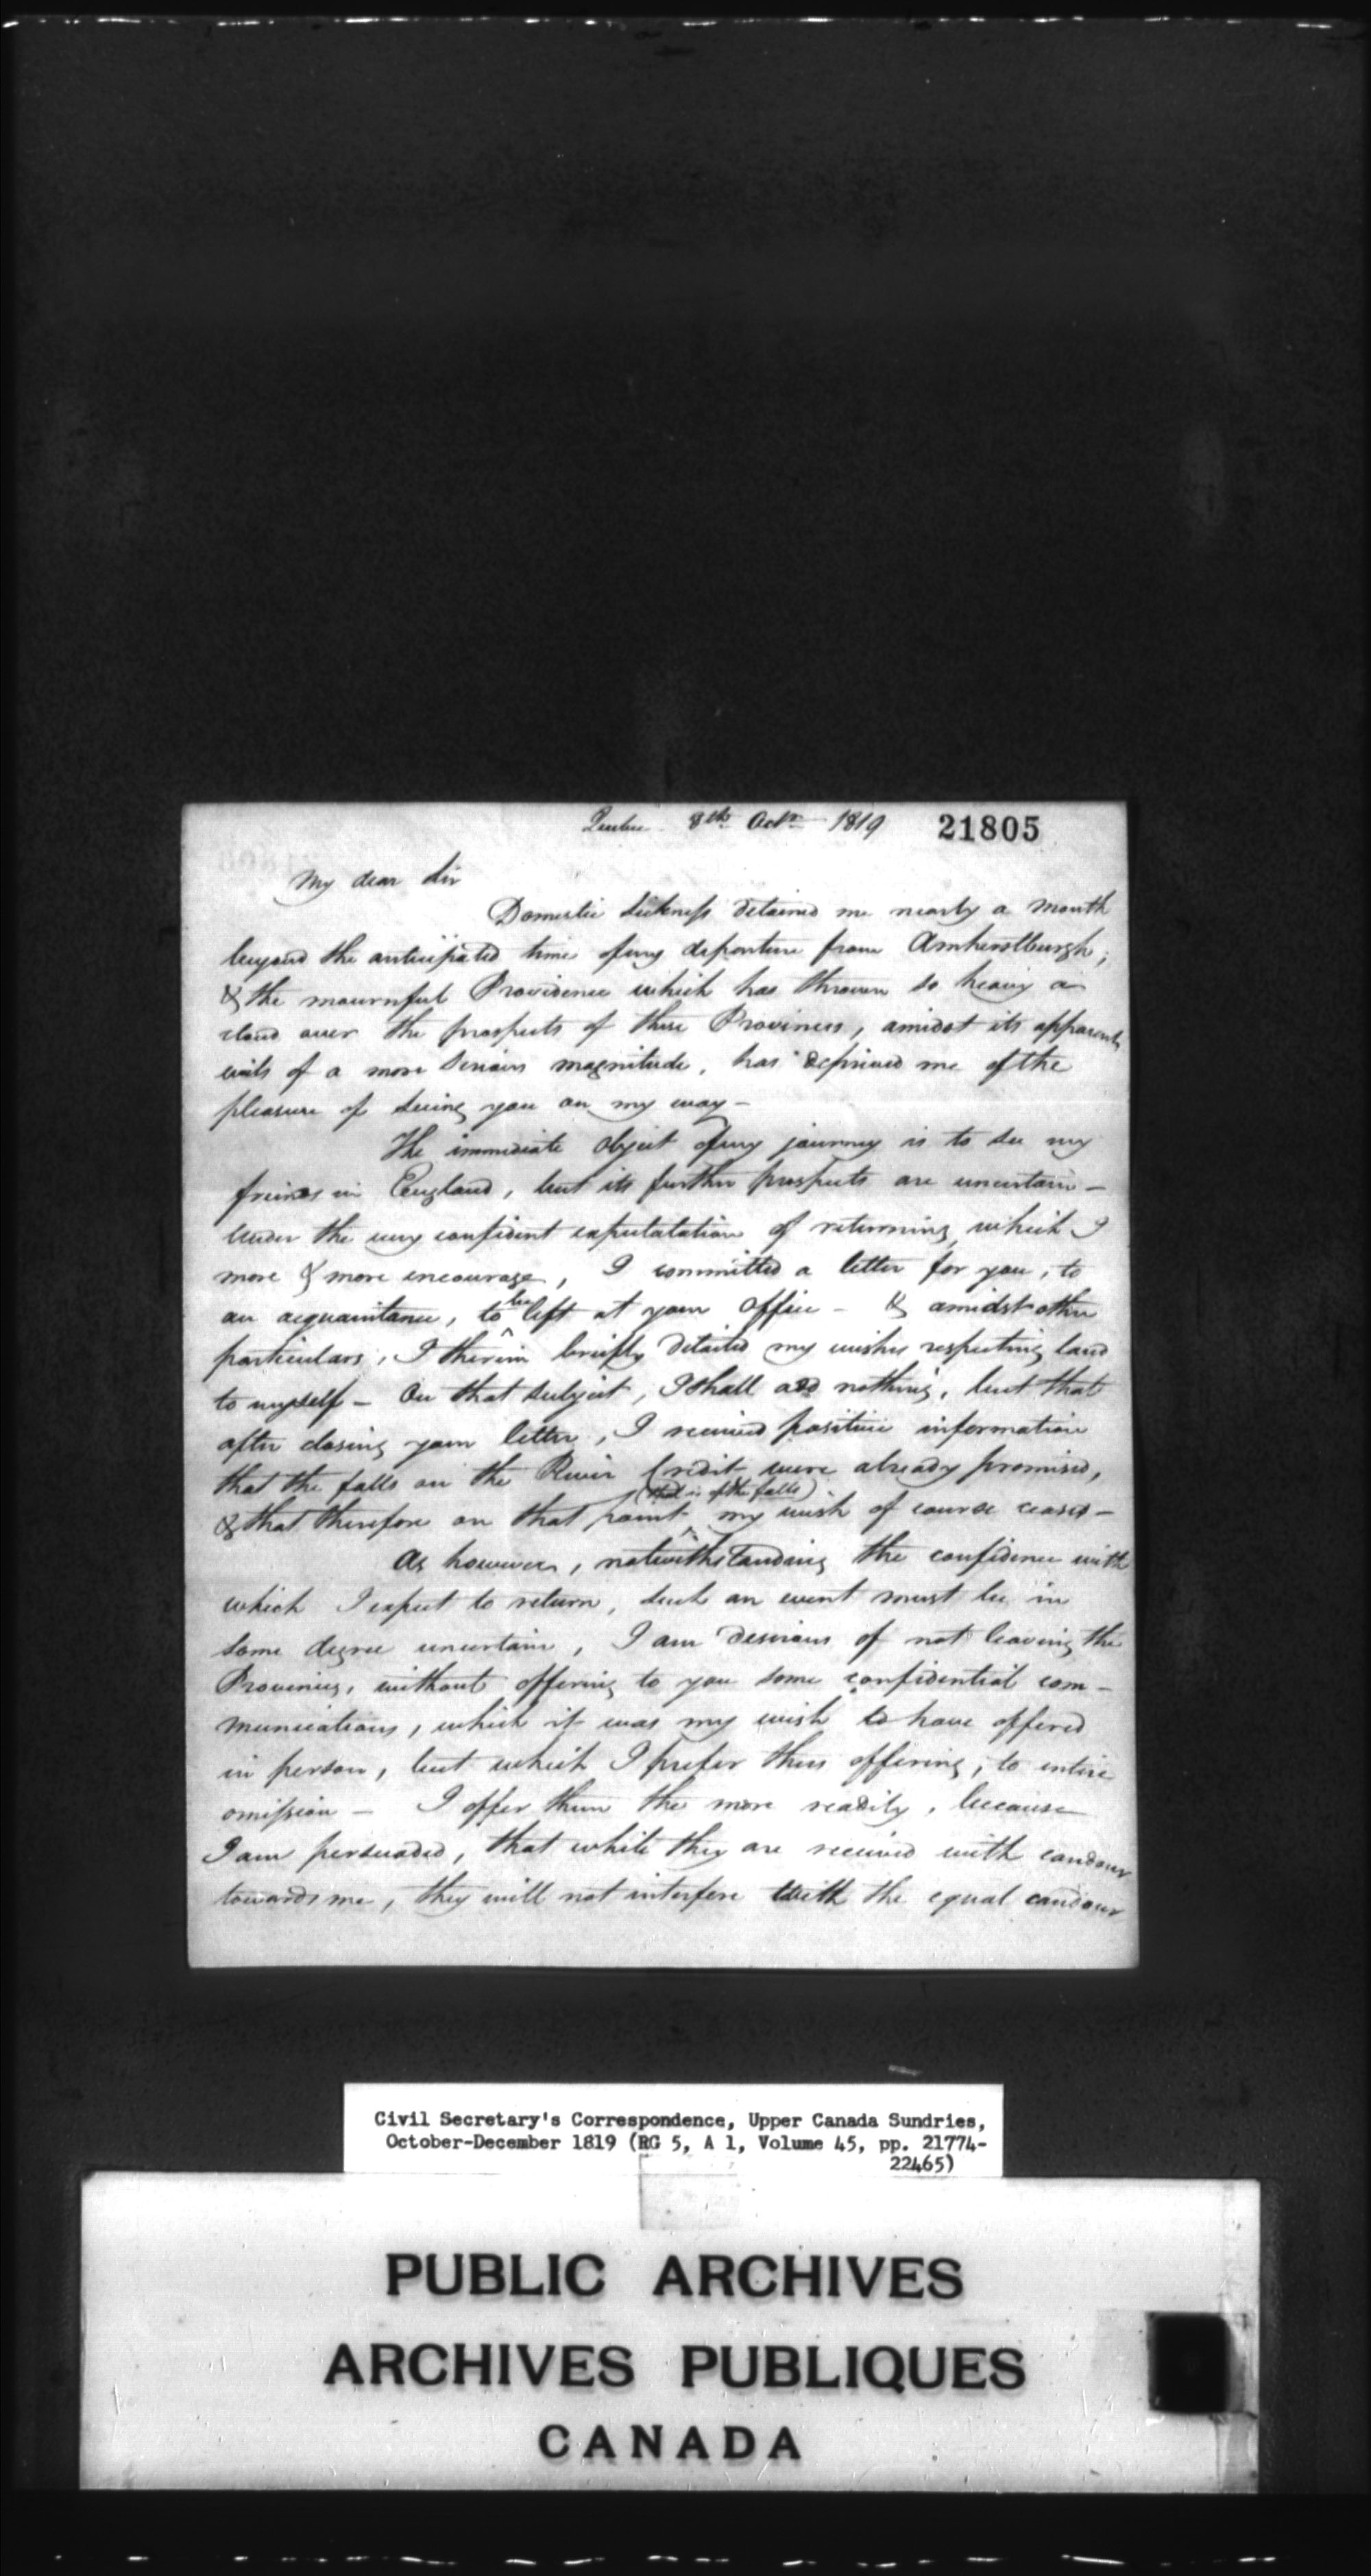 Quebec 8th Octr 1819 21805
My dear Sir
Domestic sickness detained me nearly a month
beyond the anticipated time of my departure from Amherstburgh;
& the mournful Providence which has thrown so heavy a
cloud over the prospects of these Provinces, amidst its apparently
evils of a more serious magnitude, has deprived me of the
pleasure of seeing you on my way -
The immediate object of my journey is to see my
freinds in England, but its further prospects are uncertain -
Under the very confident expectatation of returning, which I
more & more encourage, I committed a letter for you, to
an acquaintance, to be left at your office - & amidst other
particulars, I therein briefly detailed my wishes respecting land
to myself - On that subject, I shall add nothing, but that
after closing your letter, I received positive information
that the falls on the River Credit were already promised,
& that therefore on that point (that is of the falls) my wish of course ceased -
As however, notwithstanding the confidence with
which I expect to return, such an event must be in
some degree uncertain, I am desirous of not leaving the
Provinces, without offering to you some confidential com-
munications, which it was my wish to have offered
in person, but which I prefer thus offering, to entire
omission - I offer them the more readily, because
I am persuaded, that while they are received with candour
towards me, they will not interfere with the equal candour
Civil Secretary's Correspondence, Upper Canada Sundries,
October-December 1819 (RG 5, A 1, Volume 45, pp. 21774-
22465)
PUBLIC ARCHIVES
ARCHIVES PUBLIQUES
CANADA